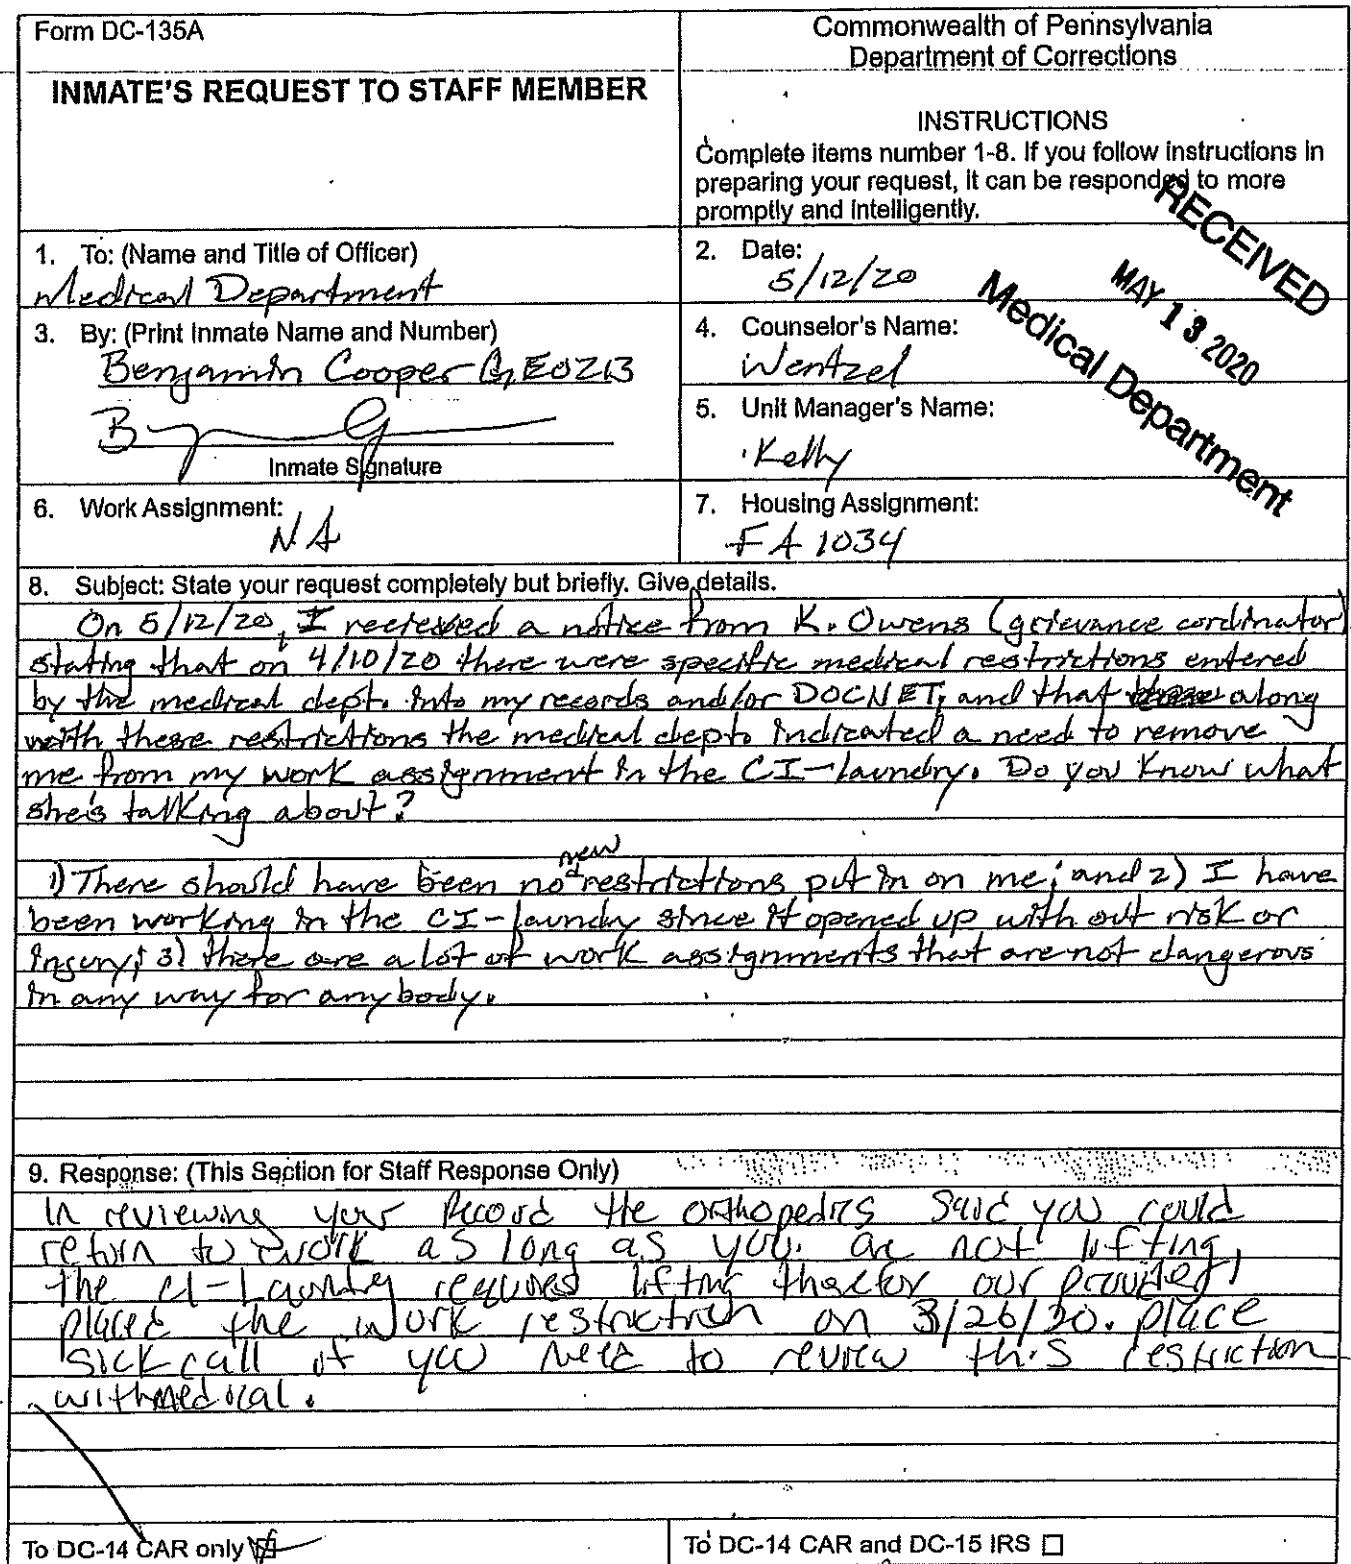 Form DC-135A
Commonwealth of Pennsylvania
Department of Corrections
INMATE'S REQUEST TO STAFF MEMBER
INSTRUCTIONS
Complete items number 1-8. If you follow instructions in
preparing your request, it can be responded to more
promptly and intelligently.
RECEIVED
MAY 13 2020
Medical Department
1. To: (Name and Title of Officer)
Medical Department
2. Date:
5/12/20
3. By: (Print Inmate Name and Number)
Benjamin Cooper GE0213
Inmate Signature
4. Counselor's Name:
Wentzel
5. Unit Manager's Name:
Kelly
6. Work Assignment:
NA
7. Housing Assignment:
FA 1034
8. Subject: State your request completely but briefly. Give details.
On 5/12/20, I recieved a notice from K. Owens (grievance cordinator)
stating that on 4/10/20 there were specific medical restrictions entered
by the medical dept. into my records and/or DOCNET, and that along
with these restrictions the medical dept. indicated a need to remove
me from my work assignment in the CI-laundry. Do you know what
she's talking about?
1) There should have been no new restrictions put in on me; and 2) I have
been working in the CI-laundry since it opened up with out risk or
injury; 3) there are a lot of work assignments that are not dangerous
in any way for anybody.
9. Response: (This Section for Staff Response Only)
In reviewing your Record the orthopedics said you could
return to work as long as you. are not lifting,
the CI-Laundry requires lifting therefor our provider
placed the work restriction on 3/26/20. place
sick call if you need to review this restriction
with medical.
To DC-14 CAR only ☑
To DC-14 CAR and DC-15 IRS ☐